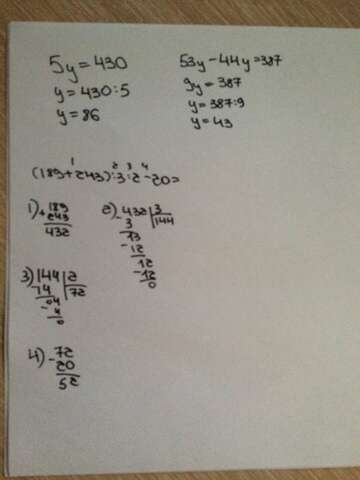 5y = 430
y = 430:5
y = 86
53y - 44y = 387
9y = 387
y = 387:9
y = 43
1 2 3 4
(189+243):3:2-20=
1) + 189
243
432
2) - 432 | 3
3 144
13
- 12
12
- 12
0
3) - 144 | 2
14 72
04
- 4
0
4) - 72
20
52